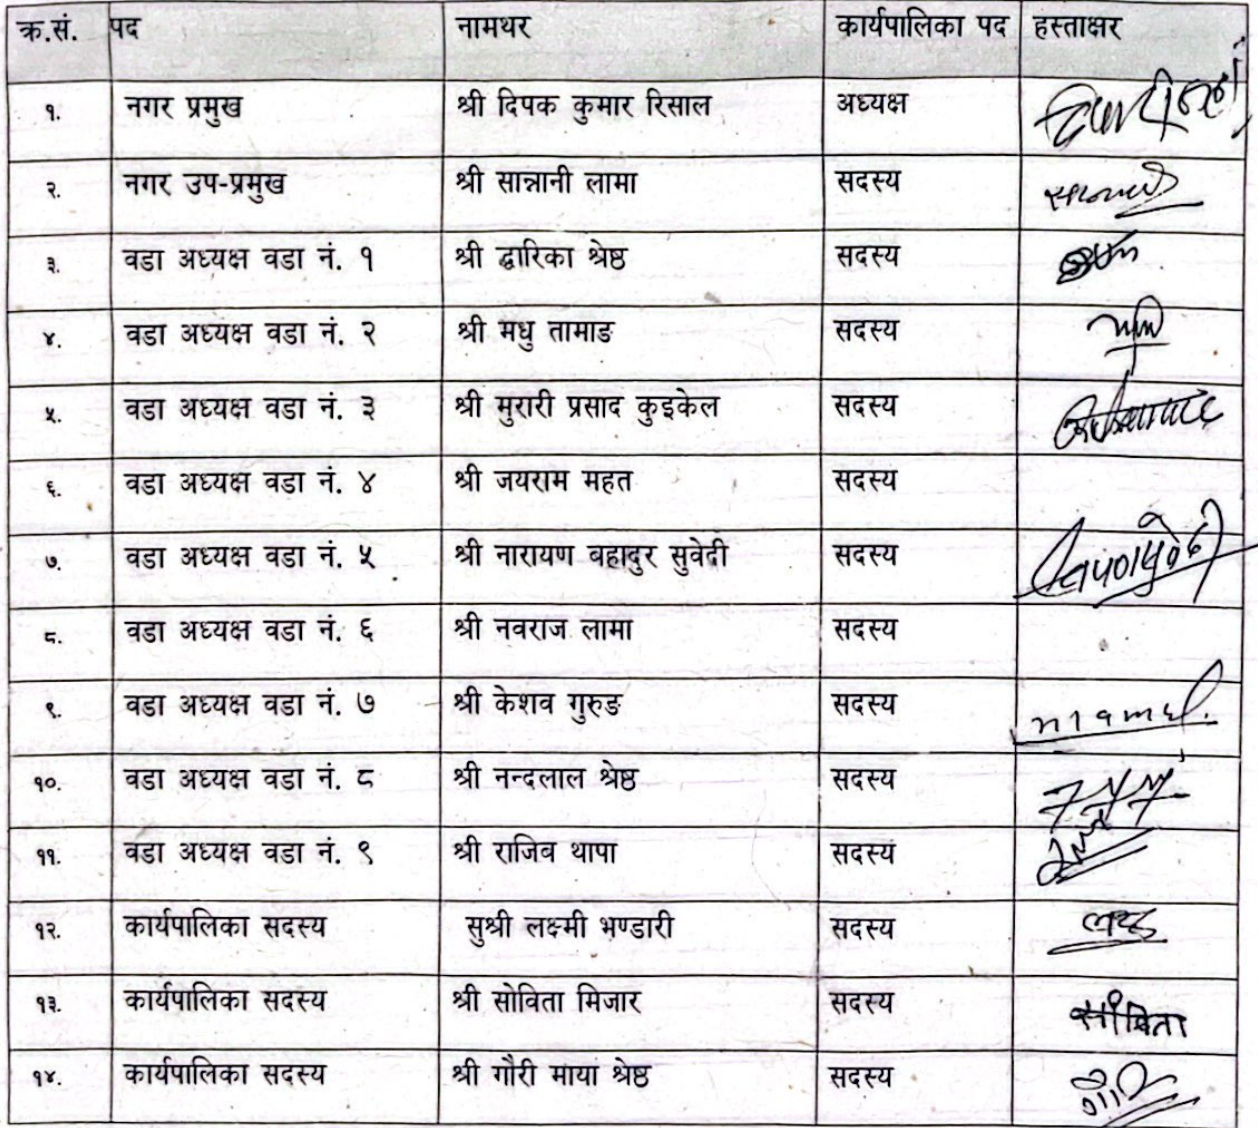 क्र.सं. पद नामथर कार्यपालिका पद हस्ताक्षर
१. नगर प्रमुख श्री दिपक कुमार रिसाल अध्यक्ष
२. नगर उप-प्रमुख श्री सान्नानी लामा सदस्य
३. वडा अध्यक्ष वडा नं. १ श्री द्वारिका श्रेष्ठ सदस्य
४. वडा अध्यक्ष वडा नं. २ श्री मधु तामाङ सदस्य
५. वडा अध्यक्ष वडा नं. ३ श्री मुरारी प्रसाद कुइकेल सदस्य
६. वडा अध्यक्ष वडा नं. ४ श्री जयराम महत सदस्य
७. वडा अध्यक्ष वडा नं. ५ श्री नारायण बहादुर सुवेदी सदस्य
८. वडा अध्यक्ष वडा नं. ६ श्री नवराज लामा सदस्य
९. वडा अध्यक्ष वडा नं. ७ श्री केशव गुरुङ सदस्य
१०. वडा अध्यक्ष वडा नं. ८ श्री नन्दलाल श्रेष्ठ सदस्य
११. वडा अध्यक्ष वडा नं. ९ श्री राजिव थापा सदस्य
१२. कार्यपालिका सदस्य सुश्री लक्ष्मी भण्डारी सदस्य
१३. कार्यपालिका सदस्य श्री सोविता मिजार सदस्य सोविता
१४. कार्यपालिका सदस्य श्री गौरी माया श्रेष्ठ सदस्य